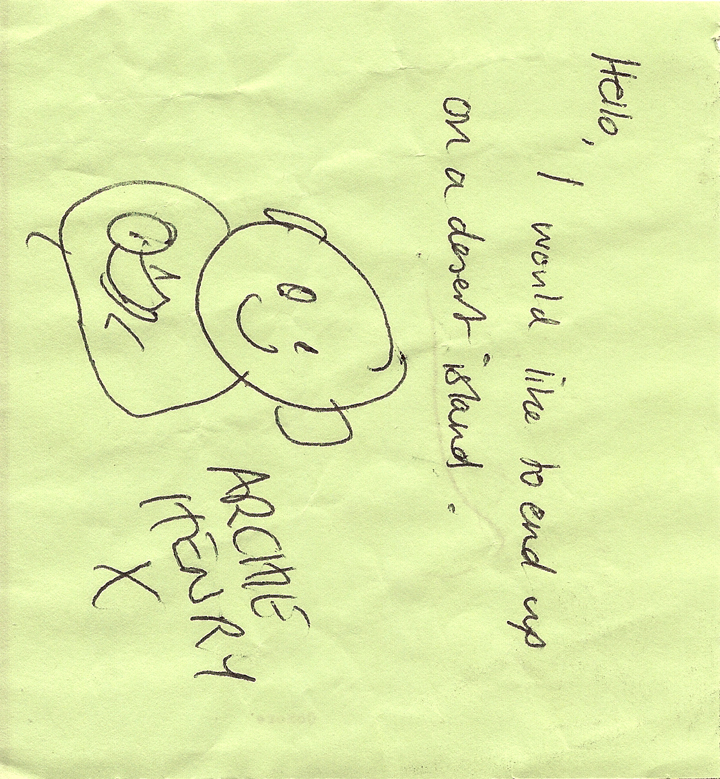 Hello,
I would like to end up
on a desert island.
ARCHIE
HENRY
X